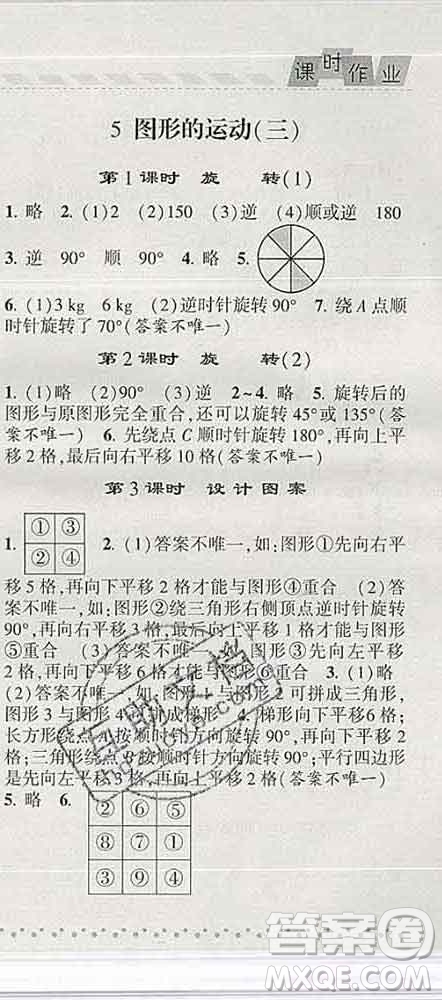 课时作业
5 图形的运动(三)
第1课时 旋 转(1)
1. 略 2. (1)2 (2)150 (3)逆 (4)顺或逆 180
3. 逆 90° 顺 90° 4. 略 5.
6. (1)3 kg 6 kg (2)逆时针旋转90° 7. 绕A点顺
时针旋转了70°(答案不唯一)
第2课时 旋 转(2)
1. (1)略 (2)90° (3)逆 2~4. 略 5. 旋转后的
图形与原图形完全重合,还可以旋转45°或135°(答
案不唯一) 6. 先绕点C顺时针旋转180°,再向上平
移2格,最后向右平移10格(答案不唯一)
第3课时 设计图案
①③
1. ②④ 2. (1)答案不唯一,如:图形①先向右平
移5格,再向下平移2格才能与图形④重合 (2)答
案不唯一,如:图形②绕三角形右侧顶点逆时针旋转
90°,再向右平移3格,最后向上平移1格才能与图形
⑤重合 (3)答案不唯一,如:图形③先向左平移2
格,再向下平移6格才能与图形⑥重合 3. (1)略
(2)答案不唯一,如:图形1与图形2可拼成三角形,
图形3与图形4可拼成梯形 4. 梯形向下平移6格;
长方形绕点A按顺时针方向旋转90°,再向右平移2
格;三角形绕点B按顺时针方向旋转90°;平行四边形
是先向左平移3格,再向上平移2格(答案不唯一)
5. 略 6.
②⑥⑤
⑧⑦①
③⑨④
答案卷
MXQE.COM